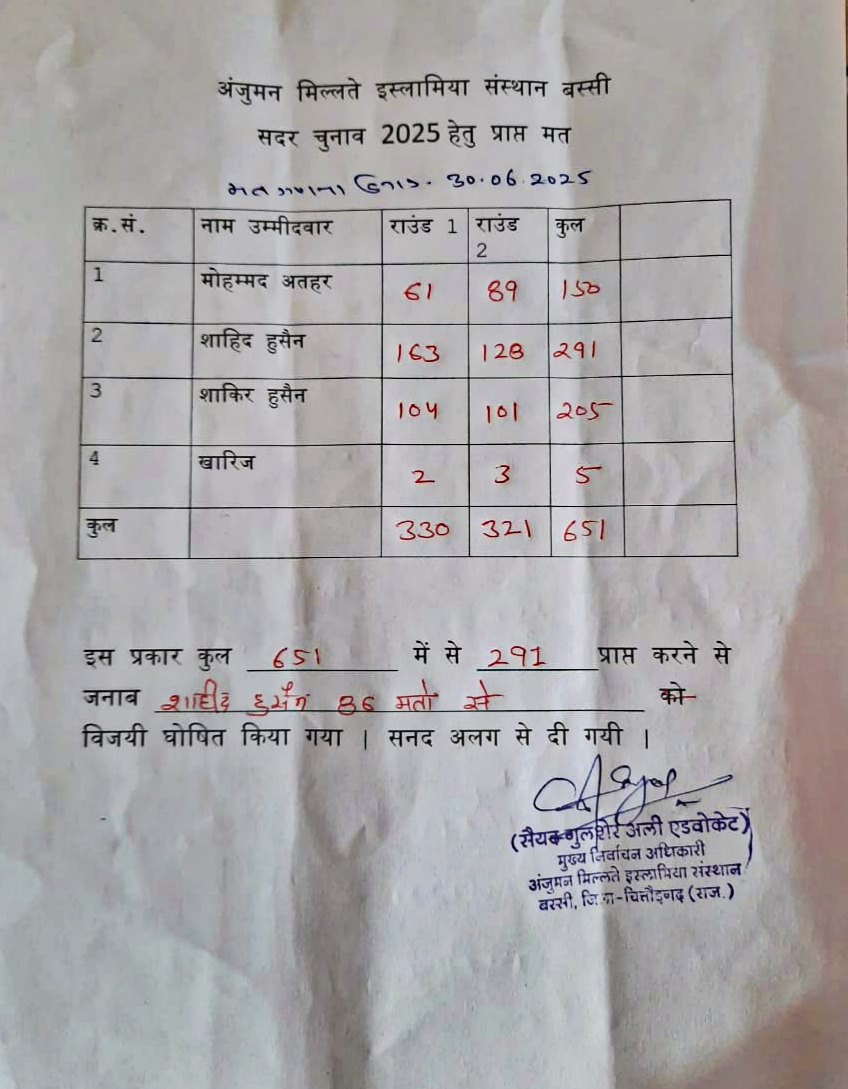 अंजुमन मिल्लते इस्लामिया संस्थान बस्सी
सदर चुनाव 2025 हेतु प्राप्त मत
मत गणना दिनांक. 30.06.2025
क्र.सं. नाम उम्मीदवार राउंड 1 राउंड 2 कुल
1 मोहम्मद अतहर 61 89 150
2 शाहिद हुसैन 163 128 291
3 शाकिर हुसैन 104 101 205
4 खारिज 2 3 5
कुल 330 321 651
इस प्रकार कुल 651 में से 291 प्राप्त करने से
जनाब शाहीद हुसैन 86 मतो से को
विजयी घोषित किया गया | सनद अलग से दी गयी |
(सैयद गुलशेर अली एडवोकेट)
मुख्य निर्वाचन अधिकारी
अंजुमन मिल्लते इस्लामिया संस्थान
बस्सी, जिला-चित्तौड़गढ़ (राज.)